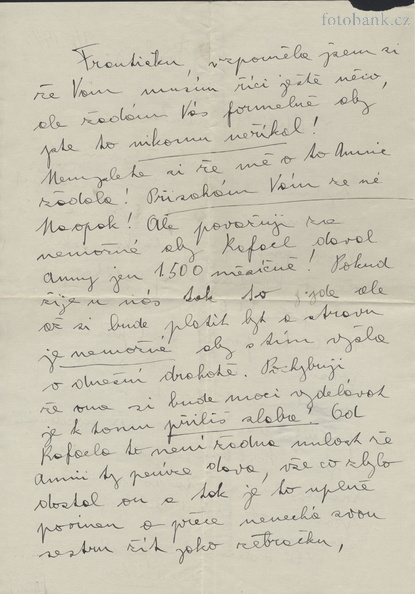 fotobank.cz
Františku, vzpomněla jsem si
že Vám musím říci ještě něco,
ale žádám Vás formelně aby
jste to nikomu neříkal!
Nemyslete si že mě o to Annie
žádala! Přisahám Vám že ne
Naopak! Ale považuji za
nemožné aby Rafael dával
Anny jen 1500 měsíčně! Pokud
žije u nás tak to jde ale
až si bude platit byt a stravu
je nemožné aby s tím vyšla
o dnešní drahotě. Pochybuji
že ona si bude moci vydělávat
je k tomu příliš slabá! Od
Rafaela to není žádná milost že
Annii ty peníze dává, vše co zbylo
dostal on a tak je to uplně
povinen a přece nenechá svou
sestru žít jako žebračku,